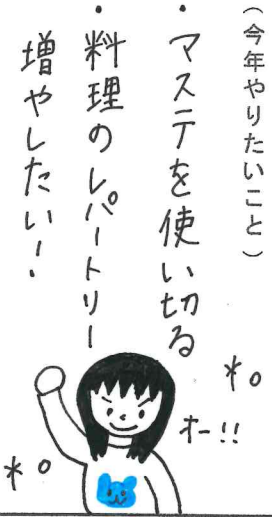 (今年やりたいこと)
・マステを使い切る
・料理のレパートリー
増やしたい！
オー!!